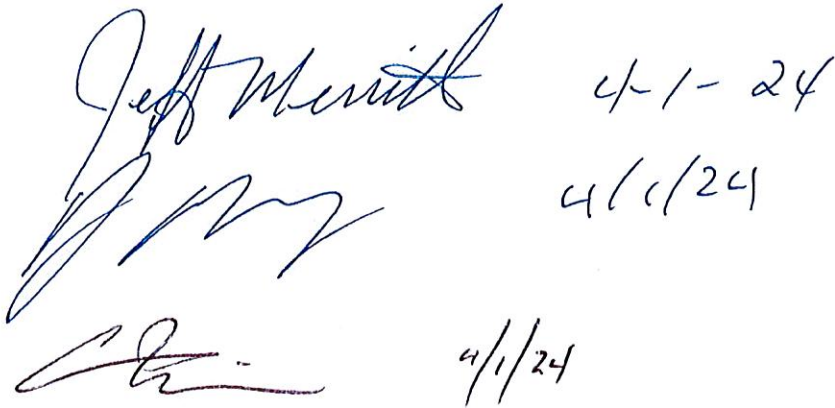 Jeff Merritt 4-1-24
4/1/24
4/1/24